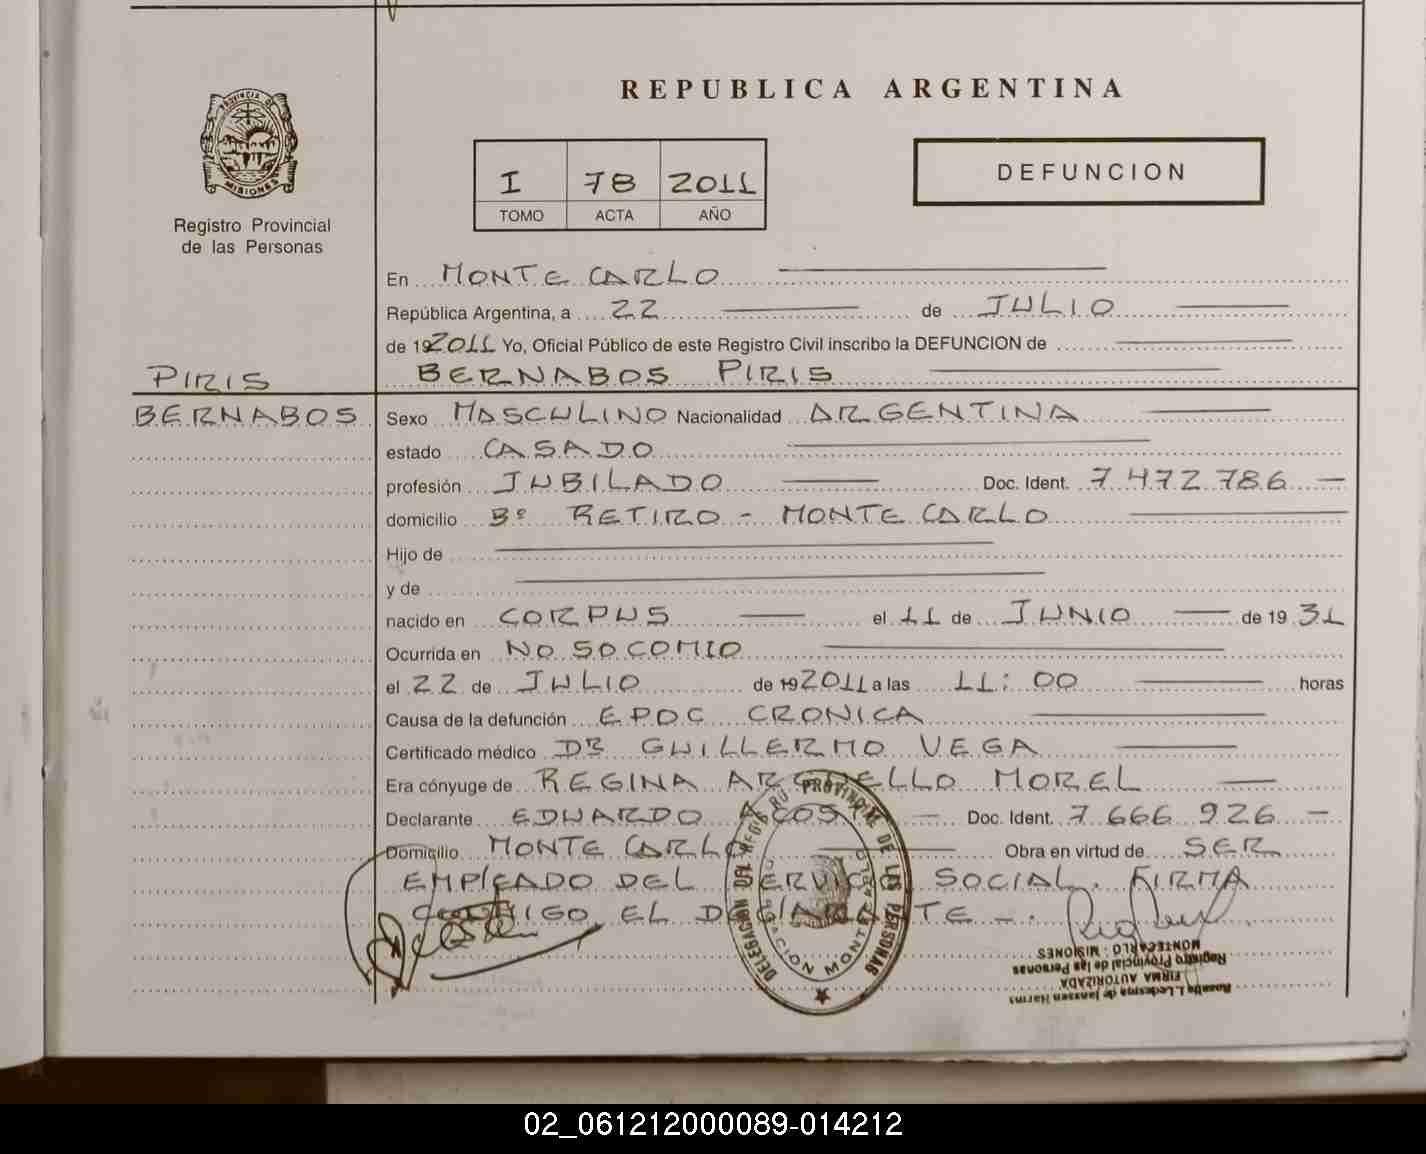 REPUBLICA ARGENTINA
PROVINCIA DE
MISIONES
Registro Provincial
de las Personas
I 78 2011
TOMO ACTA AÑO
DEFUNCION
En MONTE CARLO
República Argentina, a 22 de JULIO
de 192011 Yo, Oficial Público de este Registro Civil inscribo la DEFUNCION de
BERNABOS PIRIS
PIRIS
BERNABOS
Sexo MASCULINO Nacionalidad ARGENTINA
estado CASADO
profesión JUBILADO Doc. Ident. 7 472 786 —
domicilio Bº RETIRO - MONTE CARLO
Hijo de
y de
nacido en CORPUS el 11 de JUNIO de 19 31
Ocurrida en NOSOCOMIO
el 22 de JULIO de 192011 a las 11:00 horas
Causa de la defunción EPOC CRONICA
Certificado médico DR GUILLERMO VEGA
Era cónyuge de REGINA ARGUELLO MOREL
Declarante EDUARDO ACOS — Doc. Ident. 7 666 926 —
Domicilio MONTE CARLO Obra en virtud de SER
EMPLEADO DEL SERVICIO SOCIAL. FIRMA
CONMIGO EL DECLARANTE -.
DELEGACION DEL REGISTRO PROVINCIAL DE LAS PERSONAS
DELEGACION MONTECARLO
Rosalia I. Ledesma de Janssen Harms
FIRMA AUTORIZADA
Registro Provincial de las Personas
MONTECARLO - MISIONES
02_061212000089-014212